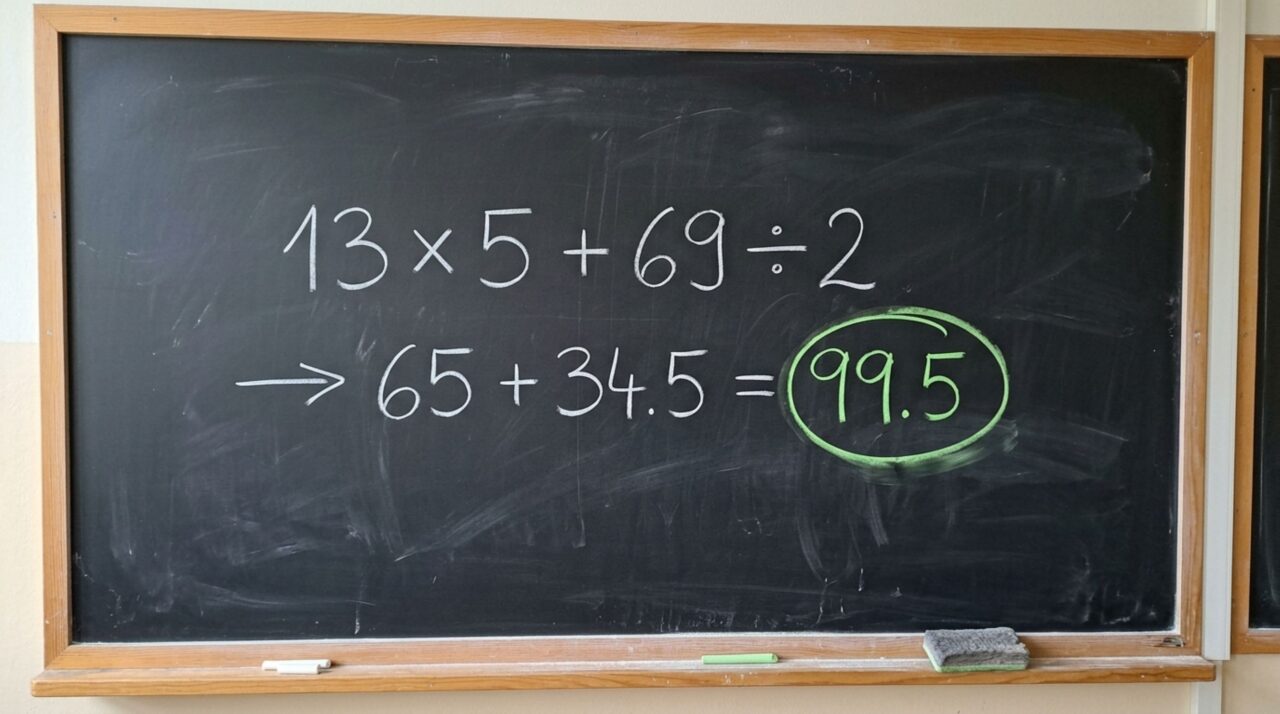 13 × 5 + 69 ÷ 2
→ 65 + 34.5 = 99.5